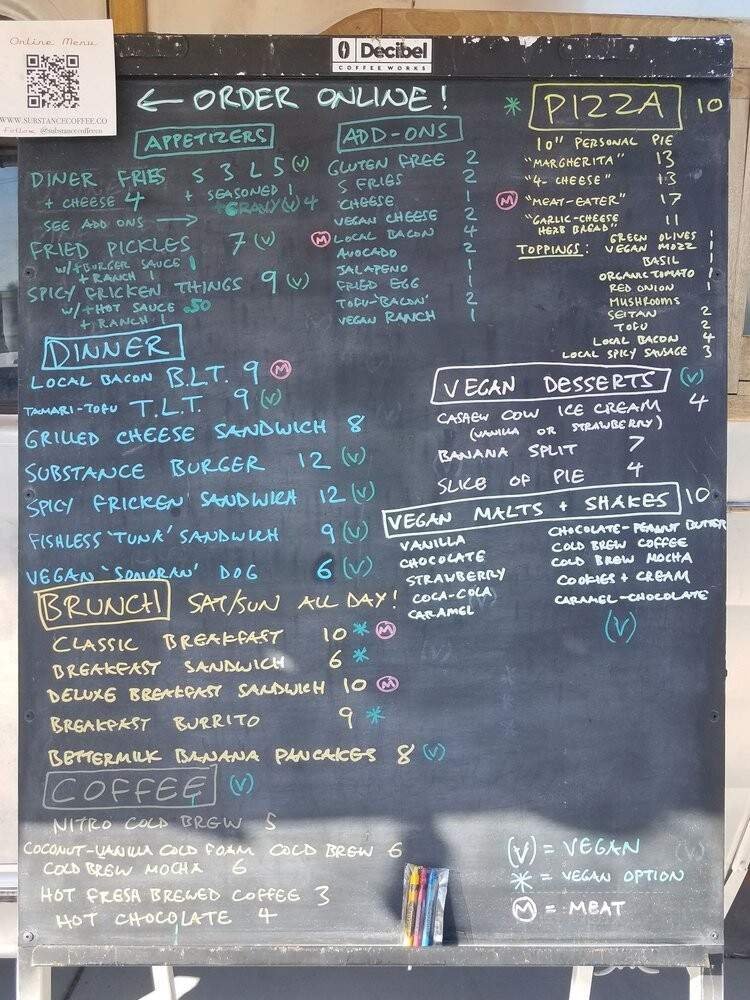 Online Menu
WWW.SUBSTANCECOFFEE.CO
Follow @substancecoffeeco
Decibel
COFFEE WORKS
← ORDER ONLINE!
APPETIZERS
DINER FRIES S 3 L 5 (V)
+ CHEESE 4 + SEASONED 1
GRAVY (V) 4
SEE ADD ONS →
FRIED PICKLES 7 (V)
W/+BURGER SAUCE 1
+ RANCH 1
SPICY FRICKEN THINGS 9 (V)
W/+HOT SAUCE .50
+ RANCH 1
ADD-ONS
GLUTEN FREE 2
S FRIES 2
CHEESE 1
VEGAN CHEESE 2
(M) LOCAL BACON 4
AVOCADO 2
JALAPENO 1
FRIED EGG 1
TOFU-'BACON' 2
VEGAN RANCH 1
* PIZZA 10
10" PERSONAL PIE
"MARGHERITA" 13
"4-CHEESE" 13
(M) "MEAT-EATER" 17
"GARLIC-CHEESE 11
HERB BREAD"
TOPPINGS: GREEN OLIVES 1
VEGAN MOZZ 1
BASIL 1
ORGANIC TOMATO 1
RED ONION 1
MUSHROOMS
SEITAN 2
TOFU 2
LOCAL BACON 4
LOCAL SPICY SAUSAGE 3
DINNER
LOCAL BACON B.L.T. 9 (M)
TAMARI-TOFU T.L.T. 9 (V)
GRILLED CHEESE SANDWICH 8
SUBSTANCE BURGER 12 (V)
SPICY FRICKEN SANDWICH 12 (V)
FISHLESS 'TUNA' SANDWICH 9 (V)
VEGAN 'SONORAN' DOG 6 (V)
VEGAN DESSERTS (V)
CASHEW COW ICE CREAM 4
(VANILLA OR STRAWBERRY)
BANANA SPLIT 7
SLICE OF PIE 4
VEGAN MALTS + SHAKES 10
VANILLA
CHOCOLATE
STRAWBERRY
COCA-COLA
CARAMEL
CHOCOLATE-PEANUT BUTTER
COLD BREW COFFEE
COLD BREW MOCHA
COOKIES + CREAM
CARAMEL-CHOCOLATE
(V)
BRUNCH SAT/SUN ALL DAY!
CLASSIC BREAKFAST 10 * (M)
BREAKFAST SANDWICH 6 *
DELUXE BREAKFAST SANDWICH 10 (M)
BREAKFAST BURRITO 9 *
BETTERMILK BANANA PANCAKES 8 (V)
COFFEE (V)
NITRO COLD BREW 5
COCONUT-VANILLA COLD FOAM COLD BREW 6
COLD BREW MOCHA 6
HOT FRESH BREWED COFFEE 3
HOT CHOCOLATE 4
(V) = VEGAN
* = VEGAN OPTION
(M) = MEAT